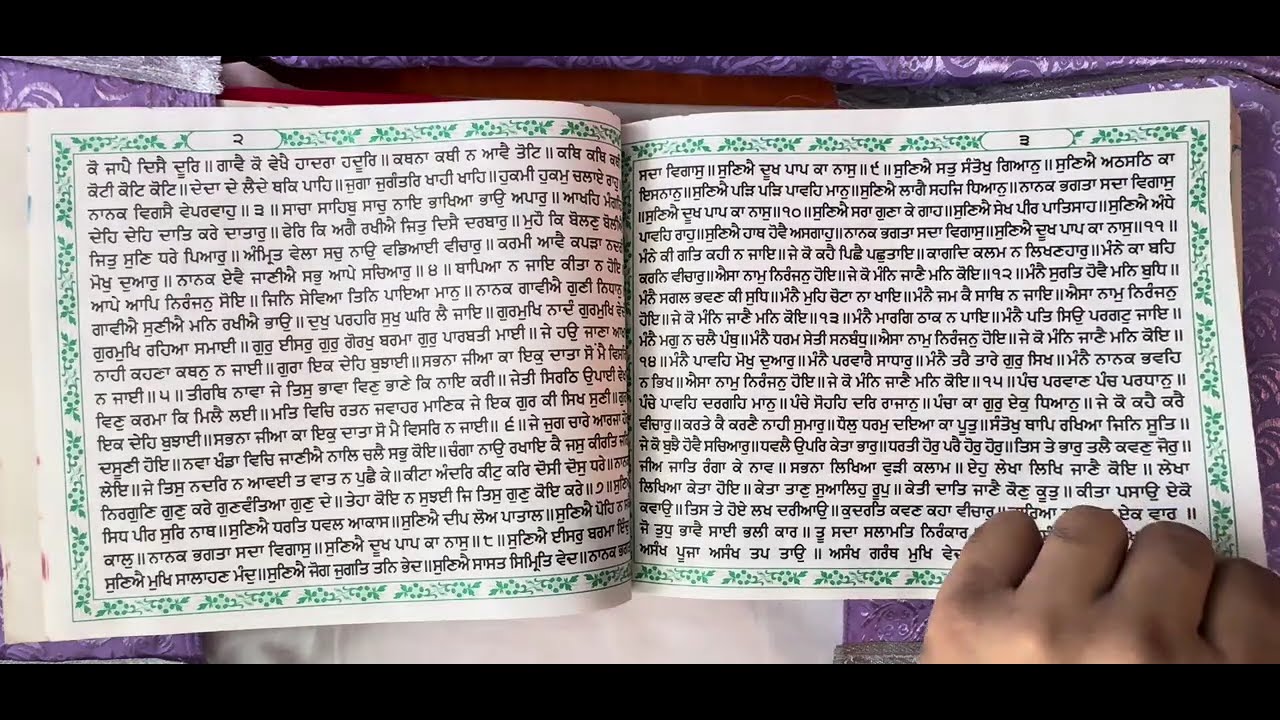 ੨
ਕੋ ਜਾਪੈ ਦਿਸੈ ਦੂਰਿ॥ ਗਾਵੈ ਕੋ ਵੇਖੈ ਹਾਦਰਾ ਹਦੂਰਿ॥ ਕਥਨਾ ਕਥੀ ਨ ਆਵੈ ਤੋਟਿ॥ ਕਥਿ ਕਥਿ
ਕੋਟੀ ਕੋਟਿ ਕੋਟਿ॥ ਦੇਦਾ ਦੇ ਲੈਦੇ ਥਕਿ ਪਾਹਿ॥ ਜੁਗਾ ਜੁਗੰਤਰਿ ਖਾਹੀ ਖਾਹਿ॥ ਹੁਕਮੀ ਹੁਕਮੁ ਚਲਾਏ ਰਾਹੁ
ਨਾਨਕ ਵਿਗਸੈ ਵੇਪਰਵਾਹੁ॥੩॥ ਸਾਚਾ ਸਾਹਿਬੁ ਸਾਚੁ ਨਾਇ ਭਾਖਿਆ ਭਾਉ ਅਪਾਰੁ॥ ਆਖਹਿ
ਦੇਹਿ ਦੇਹਿ ਦਾਤਿ ਕਰੇ ਦਾਤਾਰੁ॥ ਫੇਰਿ ਕਿ ਅਗੈ ਰਖੀਐ ਜਿਤੁ ਦਿਸੈ ਦਰਬਾਰੁ॥ ਮੁਹੌ ਕਿ ਬੋਲਣੁ
ਜਿਤੁ ਸੁਣਿ ਧਰੇ ਪਿਆਰੁ॥ ਅੰਮ੍ਰਿਤ ਵੇਲਾ ਸਚੁ ਨਾਉ ਵਡਿਆਈ ਵੀਚਾਰੁ॥ ਕਰਮੀ ਆਵੈ ਕਪੜਾ
ਮੋਖੁ ਦੁਆਰੁ॥ ਨਾਨਕ ਏਵੈ ਜਾਣੀਐ ਸਭੁ ਆਪੇ ਸਚਿਆਰੁ॥੪॥ ਥਾਪਿਆ ਨ ਜਾਇ ਕੀਤਾ ਨ ਹੋਇ
ਆਪੇ ਆਪਿ ਨਿਰੰਜਨੁ ਸੋਇ॥ ਜਿਨਿ ਸੇਵਿਆ ਤਿਨਿ ਪਾਇਆ ਮਾਨੁ॥ ਨਾਨਕ ਗਾਵੀਐ ਗੁਣੀ ਨਿਧਾਨੁ
ਗਾਵੀਐ ਸੁਣੀਐ ਮਨਿ ਰਖੀਐ ਭਾਉ॥ ਦੁਖੁ ਪਰਹਰਿ ਸੁਖੁ ਘਰਿ ਲੈ ਜਾਇ॥ ਗੁਰਮੁਖਿ ਨਾਦੰ ਗੁਰਮੁਖਿ
ਗੁਰਮੁਖਿ ਰਹਿਆ ਸਮਾਈ॥ ਗੁਰੁ ਈਸਰੁ ਗੁਰੁ ਗੋਰਖੁ ਬਰਮਾ ਗੁਰੁ ਪਾਰਬਤੀ ਮਾਈ॥ ਜੇ ਹਉ ਜਾਣਾ
ਨਾਹੀ ਕਹਣਾ ਕਥਨੁ ਨ ਜਾਈ॥ ਗੁਰਾ ਇਕ ਦੇਹਿ ਬੁਝਾਈ॥ ਸਭਨਾ ਜੀਆ ਕਾ ਇਕੁ ਦਾਤਾ ਸੋ ਮੈ ਵਿਸਰਿ
ਨ ਜਾਈ॥੫॥ ਤੀਰਥਿ ਨਾਵਾ ਜੇ ਤਿਸੁ ਭਾਵਾ ਵਿਣੁ ਭਾਣੇ ਕਿ ਨਾਇ ਕਰੀ॥ ਜੇਤੀ ਸਿਰਠਿ ਉਪਾਈ
ਵਿਣੁ ਕਰਮਾ ਕਿ ਮਿਲੈ ਲਈ॥ ਮਤਿ ਵਿਚਿ ਰਤਨ ਜਵਾਹਰ ਮਾਣਿਕ ਜੇ ਇਕ ਗੁਰ ਕੀ ਸਿਖ ਸੁਣੀ॥
ਇਕ ਦੇਹਿ ਬੁਝਾਈ॥ ਸਭਨਾ ਜੀਆ ਕਾ ਇਕੁ ਦਾਤਾ ਸੋ ਮੈ ਵਿਸਰਿ ਨ ਜਾਈ॥੬॥ ਜੇ ਜੁਗ ਚਾਰੇ ਆਰਜਾ
ਦਸੂਣੀ ਹੋਇ॥ ਨਵਾ ਖੰਡਾ ਵਿਚਿ ਜਾਣੀਐ ਨਾਲਿ ਚਲੈ ਸਭੁ ਕੋਇ॥ ਚੰਗਾ ਨਾਉ ਰਖਾਇ ਕੈ ਜਸੁ ਕੀਰਤਿ ਜਗਿ
ਲੇਇ॥ ਜੇ ਤਿਸੁ ਨਦਰਿ ਨ ਆਵਈ ਤ ਵਾਤ ਨ ਪੁਛੈ ਕੇ॥ ਕੀਟਾ ਅੰਦਰਿ ਕੀਟੁ ਕਰਿ ਦੋਸੀ ਦੋਸੁ ਧਰੇ॥
ਨਿਰਗੁਣਿ ਗੁਣੁ ਕਰੇ ਗੁਣਵੰਤਿਆ ਗੁਣੁ ਦੇ॥ ਤੇਹਾ ਕੋਇ ਨ ਸੁਝਈ ਜਿ ਤਿਸੁ ਗੁਣੁ ਕੋਇ ਕਰੇ॥੭॥
ਸਿਧ ਪੀਰ ਸੁਰਿ ਨਾਥ॥ਸੁਣਿਐ ਧਰਤਿ ਧਵਲ ਆਕਾਸ॥ਸੁਣਿਐ ਦੀਪ ਲੋਅ ਪਾਤਾਲ॥ਸੁਣਿਐ ਪੋਹਿ ਨ
ਕਾਲੁ॥ ਨਾਨਕ ਭਗਤਾ ਸਦਾ ਵਿਗਾਸੁ॥ ਸੁਣਿਐ ਦੂਖ ਪਾਪ ਕਾ ਨਾਸੁ॥੮॥ ਸੁਣਿਐ ਈਸਰੁ ਬਰਮਾ ਇੰਦੁ
ਸੁਣਿਐ ਮੁਖਿ ਸਾਲਾਹਣ ਮੰਦੁ॥ਸੁਣਿਐ ਜੋਗ ਜੁਗਤਿ ਤਨਿ ਭੇਦ॥ਸੁਣਿਐ ਸਾਸਤ ਸਿਮ੍ਰਿਤਿ ਵੇਦ॥ਨਾਨਕ
੩
ਸਦਾ ਵਿਗਾਸੁ॥ ਸੁਣਿਐ ਦੂਖ ਪਾਪ ਕਾ ਨਾਸੁ॥੯॥ ਸੁਣਿਐ ਸਤੁ ਸੰਤੋਖੁ ਗਿਆਨੁ॥ ਸੁਣਿਐ ਅਠਸਠਿ ਕਾ
ਇਸਨਾਨੁ॥ਸੁਣਿਐ ਪੜਿ ਪੜਿ ਪਾਵਹਿ ਮਾਨੁ॥ਸੁਣਿਐ ਲਾਗੈ ਸਹਜਿ ਧਿਆਨੁ॥ਨਾਨਕ ਭਗਤਾ ਸਦਾ ਵਿਗਾਸੁ
॥ਸੁਣਿਐ ਦੂਖ ਪਾਪ ਕਾ ਨਾਸੁ॥੧੦॥ਸੁਣਿਐ ਸਰਾ ਗੁਣਾ ਕੇ ਗਾਹ॥ਸੁਣਿਐ ਸੇਖ ਪੀਰ ਪਾਤਿਸਾਹ॥ਸੁਣਿਐ ਅੰਧੇ
ਪਾਵਹਿ ਰਾਹੁ॥ਸੁਣਿਐ ਹਾਥ ਹੋਵੈ ਅਸਗਾਹੁ॥ਨਾਨਕ ਭਗਤਾ ਸਦਾ ਵਿਗਾਸੁ॥ਸੁਣਿਐ ਦੂਖ ਪਾਪ ਕਾ ਨਾਸੁ॥੧੧॥
ਮੰਨੇ ਕੀ ਗਤਿ ਕਹੀ ਨ ਜਾਇ॥ਜੇ ਕੋ ਕਹੈ ਪਿਛੈ ਪਛੁਤਾਇ॥ਕਾਗਦਿ ਕਲਮ ਨ ਲਿਖਣਹਾਰੁ॥ਮੰਨੇ ਕਾ ਬਹਿ
ਕਰਨਿ ਵੀਚਾਰੁ॥ਐਸਾ ਨਾਮੁ ਨਿਰੰਜਨੁ ਹੋਇ॥ਜੇ ਕੋ ਮੰਨਿ ਜਾਣੈ ਮਨਿ ਕੋਇ॥੧੨॥ ਮੰਨੈ ਸੁਰਤਿ ਹੋਵੈ ਮਨਿ ਬੁਧਿ॥
ਮੰਨੈ ਸਗਲ ਭਵਣ ਕੀ ਸੁਧਿ॥ਮੰਨੈ ਮੁਹਿ ਚੋਟਾ ਨਾ ਖਾਇ॥ਮੰਨੈ ਜਮ ਕੈ ਸਾਥਿ ਨ ਜਾਇ॥ਐਸਾ ਨਾਮੁ ਨਿਰੰਜਨੁ
ਹੋਇ॥ਜੇ ਕੋ ਮੰਨਿ ਜਾਣੈ ਮਨਿ ਕੋਇ॥੧੩॥ਮੰਨੈ ਮਾਰਗਿ ਠਾਕ ਨ ਪਾਇ॥ਮੰਨੈ ਪਤਿ ਸਿਉ ਪਰਗਟੁ ਜਾਇ॥
ਮੰਨੈ ਮਗੁ ਨ ਚਲੈ ਪੰਥੁ॥ਮੰਨੈ ਧਰਮ ਸੇਤੀ ਸਨਬੰਧੁ॥ਐਸਾ ਨਾਮੁ ਨਿਰੰਜਨੁ ਹੋਇ॥ਜੇ ਕੋ ਮੰਨਿ ਜਾਣੈ ਮਨਿ ਕੋਇ॥
੧੪॥ ਮੰਨੈ ਪਾਵਹਿ ਮੋਖੁ ਦੁਆਰੁ॥ ਮੰਨੈ ਪਰਵਾਰੈ ਸਾਧਾਰੁ॥ ਮੰਨੈ ਤਰੈ ਤਾਰੇ ਗੁਰੁ ਸਿਖ॥ ਮੰਨੈ ਨਾਨਕ ਭਵਹਿ
ਨ ਭਿਖ॥ਐਸਾ ਨਾਮੁ ਨਿਰੰਜਨੁ ਹੋਇ॥ਜੇ ਕੋ ਮੰਨਿ ਜਾਣੈ ਮਨਿ ਕੋਇ॥੧੫॥ ਪੰਚ ਪਰਵਾਣ ਪੰਚ ਪਰਧਾਨੁ॥
ਪੰਚੇ ਪਾਵਹਿ ਦਰਗਹਿ ਮਾਨੁ॥ ਪੰਚੇ ਸੋਹਹਿ ਦਰਿ ਰਾਜਾਨੁ॥ ਪੰਚਾ ਕਾ ਗੁਰੁ ਏਕੁ ਧਿਆਨੁ॥ ਜੇ ਕੋ ਕਹੈ ਕਰੈ
ਵੀਚਾਰੁ॥ਕਰਤੇ ਕੈ ਕਰਣੈ ਨਾਹੀ ਸੁਮਾਰੁ॥ਧੌਲੁ ਧਰਮੁ ਦਇਆ ਕਾ ਪੂਤੁ॥ਸੰਤੋਖੁ ਥਾਪਿ ਰਖਿਆ ਜਿਨਿ ਸੂਤਿ॥
ਜੇ ਕੋ ਬੁਝੈ ਹੋਵੈ ਸਚਿਆਰੁ॥ਧਵਲੈ ਉਪਰਿ ਕੇਤਾ ਭਾਰੁ॥ਧਰਤੀ ਹੋਰੁ ਪਰੈ ਹੋਰੁ ਹੋਰੁ॥ਤਿਸ ਤੇ ਭਾਰੁ ਤਲੈ ਕਵਣੁ ਜੋਰੁ॥
ਜੀਅ ਜਾਤਿ ਰੰਗਾ ਕੇ ਨਾਵ॥ ਸਭਨਾ ਲਿਖਿਆ ਵੁੜੀ ਕਲਾਮ॥ ਏਹੁ ਲੇਖਾ ਲਿਖਿ ਜਾਣੈ ਕੋਇ॥ ਲੇਖਾ
ਲਿਖਿਆ ਕੇਤਾ ਹੋਇ॥ ਕੇਤਾ ਤਾਣੁ ਸੁਆਲਿਹੁ ਰੂਪੁ॥ ਕੇਤੀ ਦਾਤਿ ਜਾਣੈ ਕੌਣੁ ਕੂਤੁ॥ ਕੀਤਾ ਪਸਾਉ ਏਕੋ
ਕਵਾਉ॥ਤਿਸ ਤੇ ਹੋਏ ਲਖ ਦਰੀਆਉ॥ਕੁਦਰਤਿ ਕਵਣ ਕਹਾ ਵੀਚਾਰੁ॥ ਏਕ ਵਾਰ॥
ਜੋ ਤੁਧੁ ਭਾਵੈ ਸਾਈ ਭਲੀ ਕਾਰ॥ ਤੂ ਸਦਾ ਸਲਾਮਤਿ ਨਿਰੰਕਾਰ
ਅਸੰਖ ਪੂਜਾ ਅਸੰਖ ਤਪ ਤਾਉ॥ ਅਸੰਖ ਗਰੰਥ ਮੁਖਿ ਵੇਦ